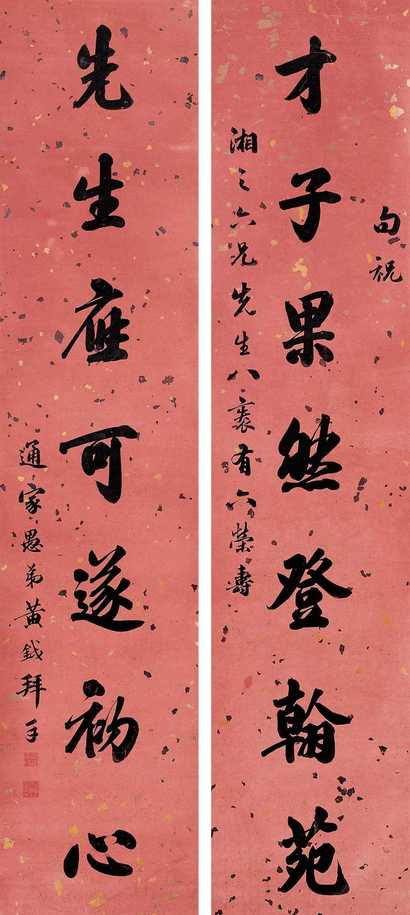 句祝
才子果然登翰苑
湘之六兄先生八袠有六榮壽
先生應可遂初心
通家愚弟黃鉞拜手